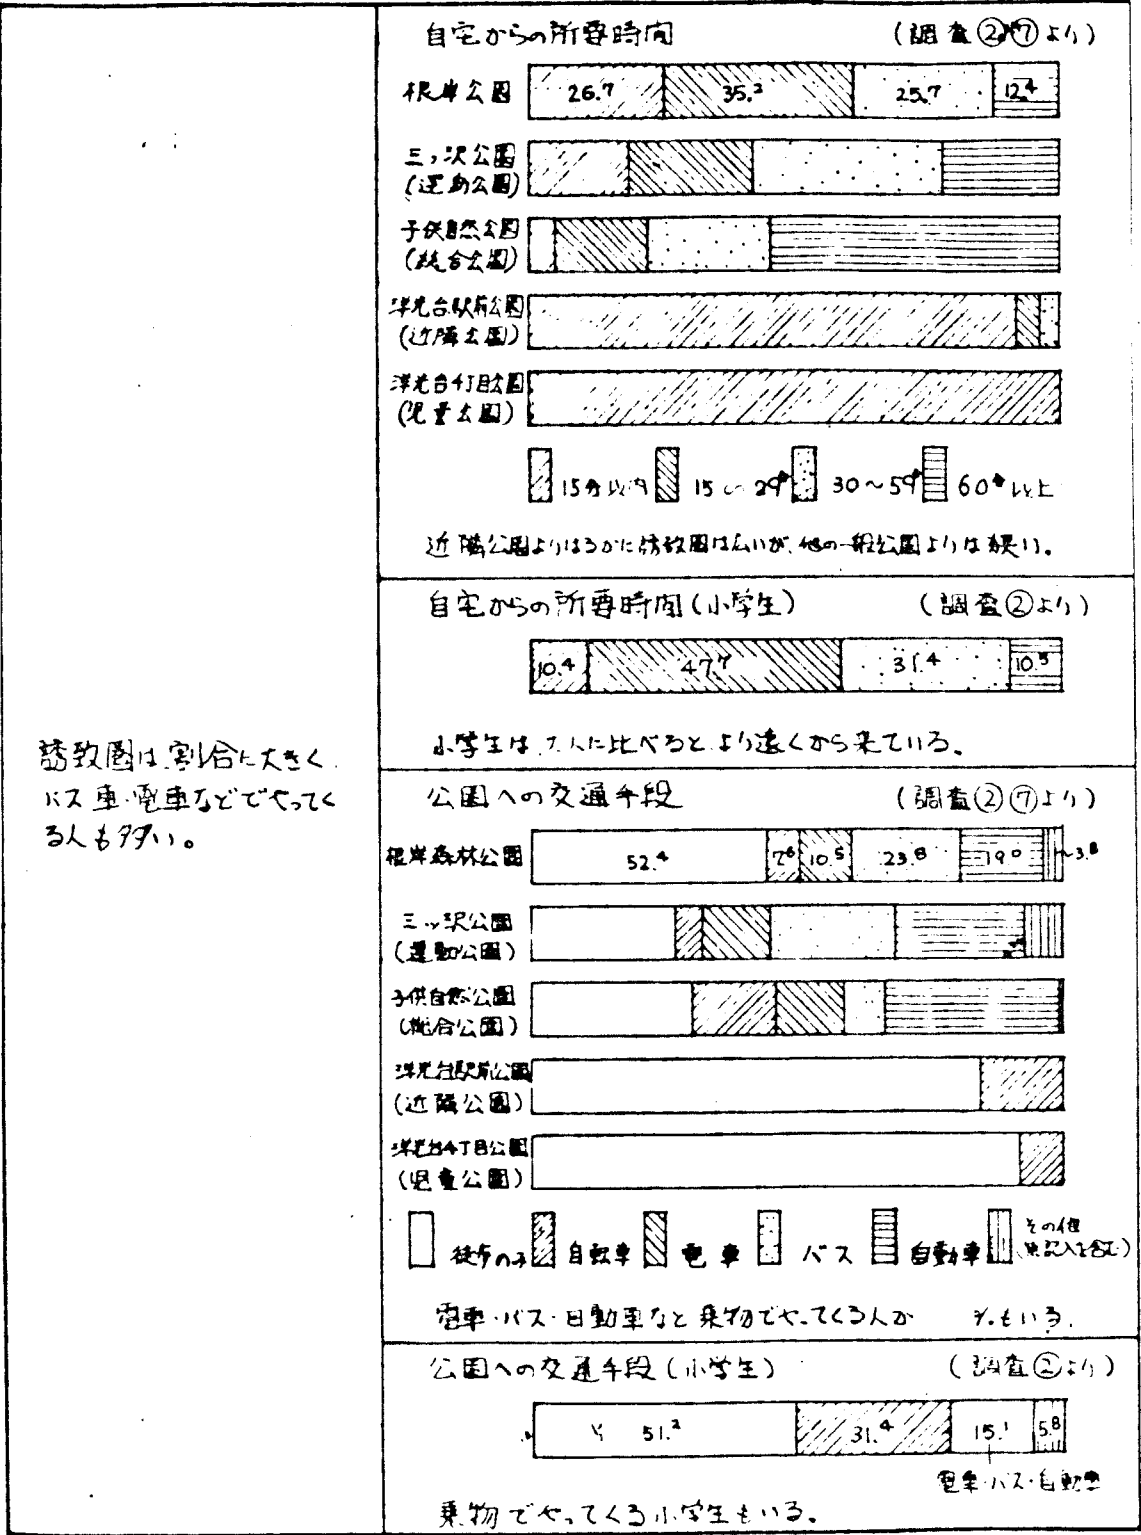 誘致圏は割合に大きく
バス 車・電車などでやってく
る人も多い。
自宅からの所要時間 (調査②⑦より)
根岸公園 26.7 35.2 25.7 12.4
三ッ沢公園
(運動公園)
子供自然公園
(総合公園)
洋光台駅前公園
(近隣公園)
洋光台4丁目公園
(児童公園)
15分以内 15〜29分 30〜59分 60分以上
近隣公園よりはるかに誘致圏は広いが、他の一般公園よりは狭い。
自宅からの所要時間(小学生) (調査②より)
10.4 47.7 31.4 10.5
小学生は大人に比べるとより遠くから来ている。
公園への交通手段 (調査②⑦より)
根岸森林公園 52.4 7.6 10.5 23.8 19.0 3.8
三ッ沢公園
(運動公園)
子供自然公園
(総合公園)
洋光台駅前公園
(近隣公園)
洋光台4丁目公園
(児童公園)
徒歩のみ 自転車 電車 バス 自動車 その他
(無記入を含む)
電車・バス・自動車など乗物でやってくる人が
もいる。
公園への交通手段(小学生) (調査②より)
51.2 31.4 15.1 5.8
電車・バス・自動車
乗物でやってくる小学生もいる。